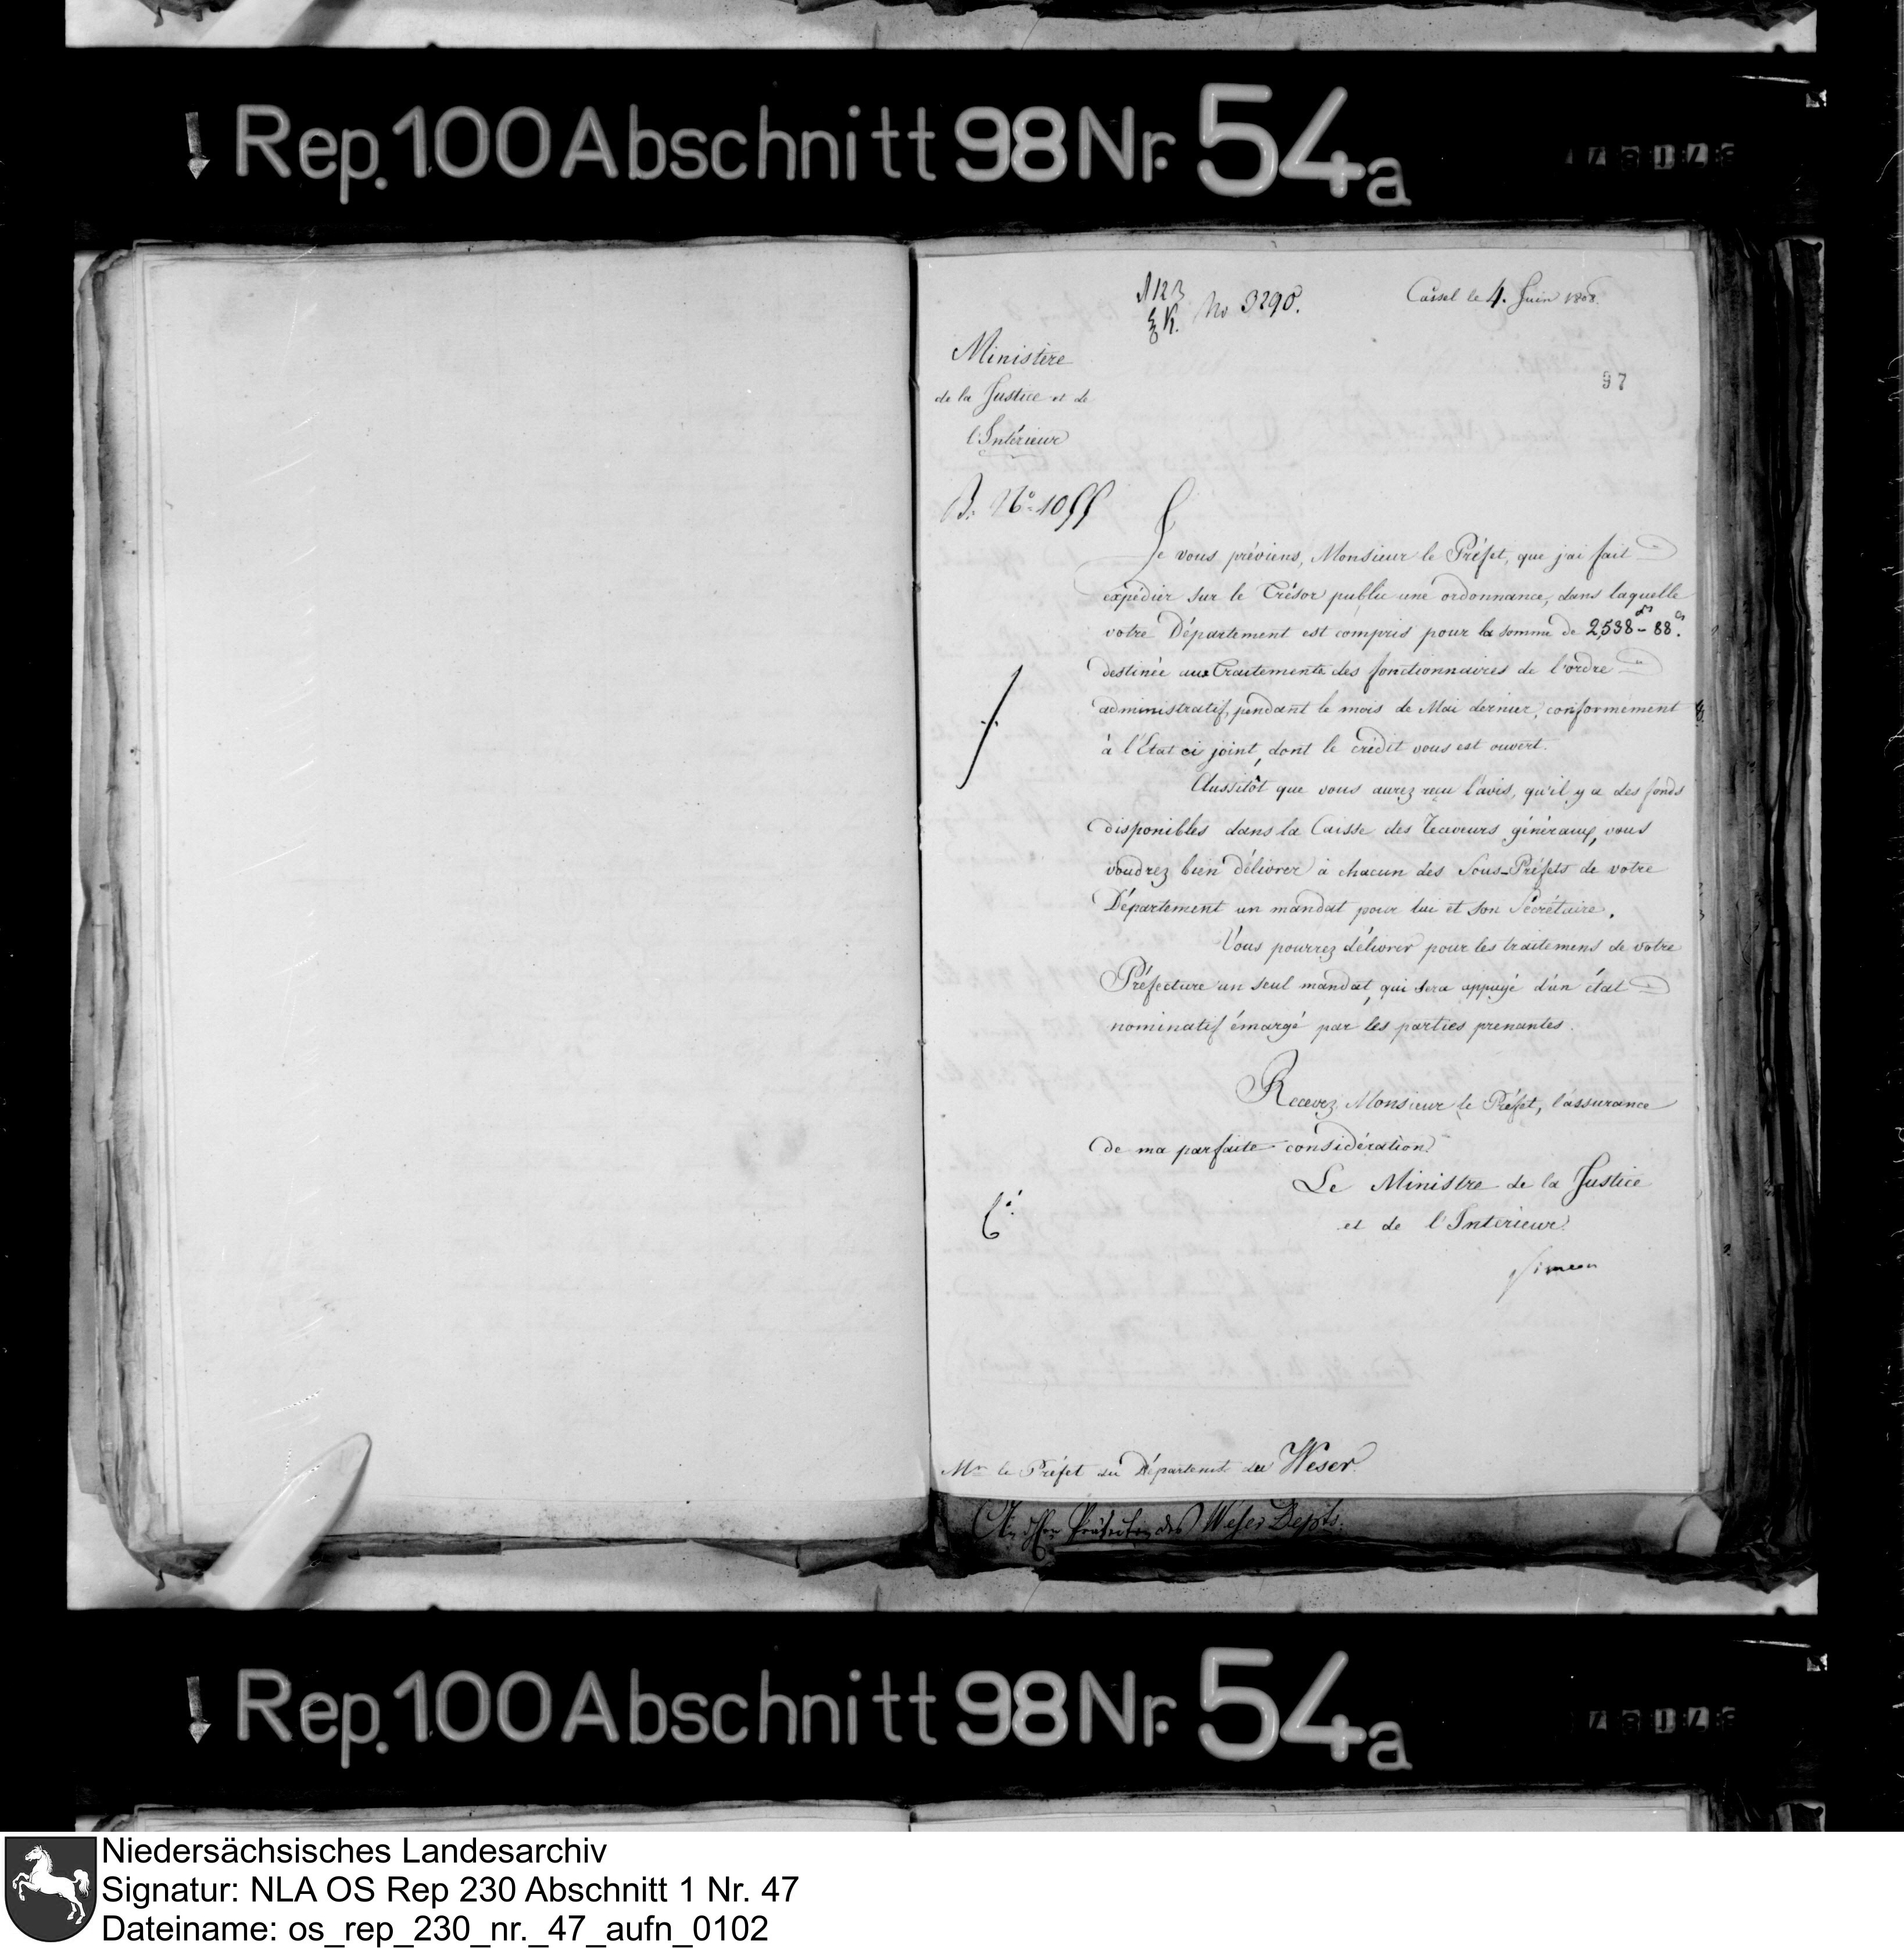 Rep. 100 Abschnitt 98 Nr. 54a
No 3290.
Cassel le 4. Juin 1808.
97
Ministère
de la Justice et de
l'Intérieur
B. No. 1055
Je vous préviens, Monsieur le Préfet, que j'ai fait
expédier sur le Trésor public une ordonnance, dans laquelle
votre Département est compris pour la somme de 2,538 - 88.
destinée aux Traitements des fonctionnaires de l'ordre
administratif, pendant le mois de Mai dernier, conformément
à l'Etat ci joint, dont le crédit vous est ouvert.
Aussitôt que vous aurez reçu l'avis, qu'il y a des fonds
disponibles dans la Caisse des Receveurs généraux, vous
voudrez bien délivrer à chacun des Sous-Préfets de votre
Département un mandat pour lui et son Sécrétaire.
Vous pourrez délivrer pour les traitemens de votre
Préfecture un seul mandat, qui sera appuyé d'un état
nominatif émargé par les parties prenantes.
Recevez Monsieur le Préfet, l'assurance
de ma parfaite considération.
Le Ministre de la Justice
et de l'Intérieur.
Simeon
Mr. le Préfet du Département du Weser.
des Weser Depts.
Rep. 100 Abschnitt 98 Nr. 54a
Niedersächsisches Landesarchiv
Signatur: NLA OS Rep 230 Abschnitt 1 Nr. 47
Dateiname: os_rep_230_nr._47_aufn_0102